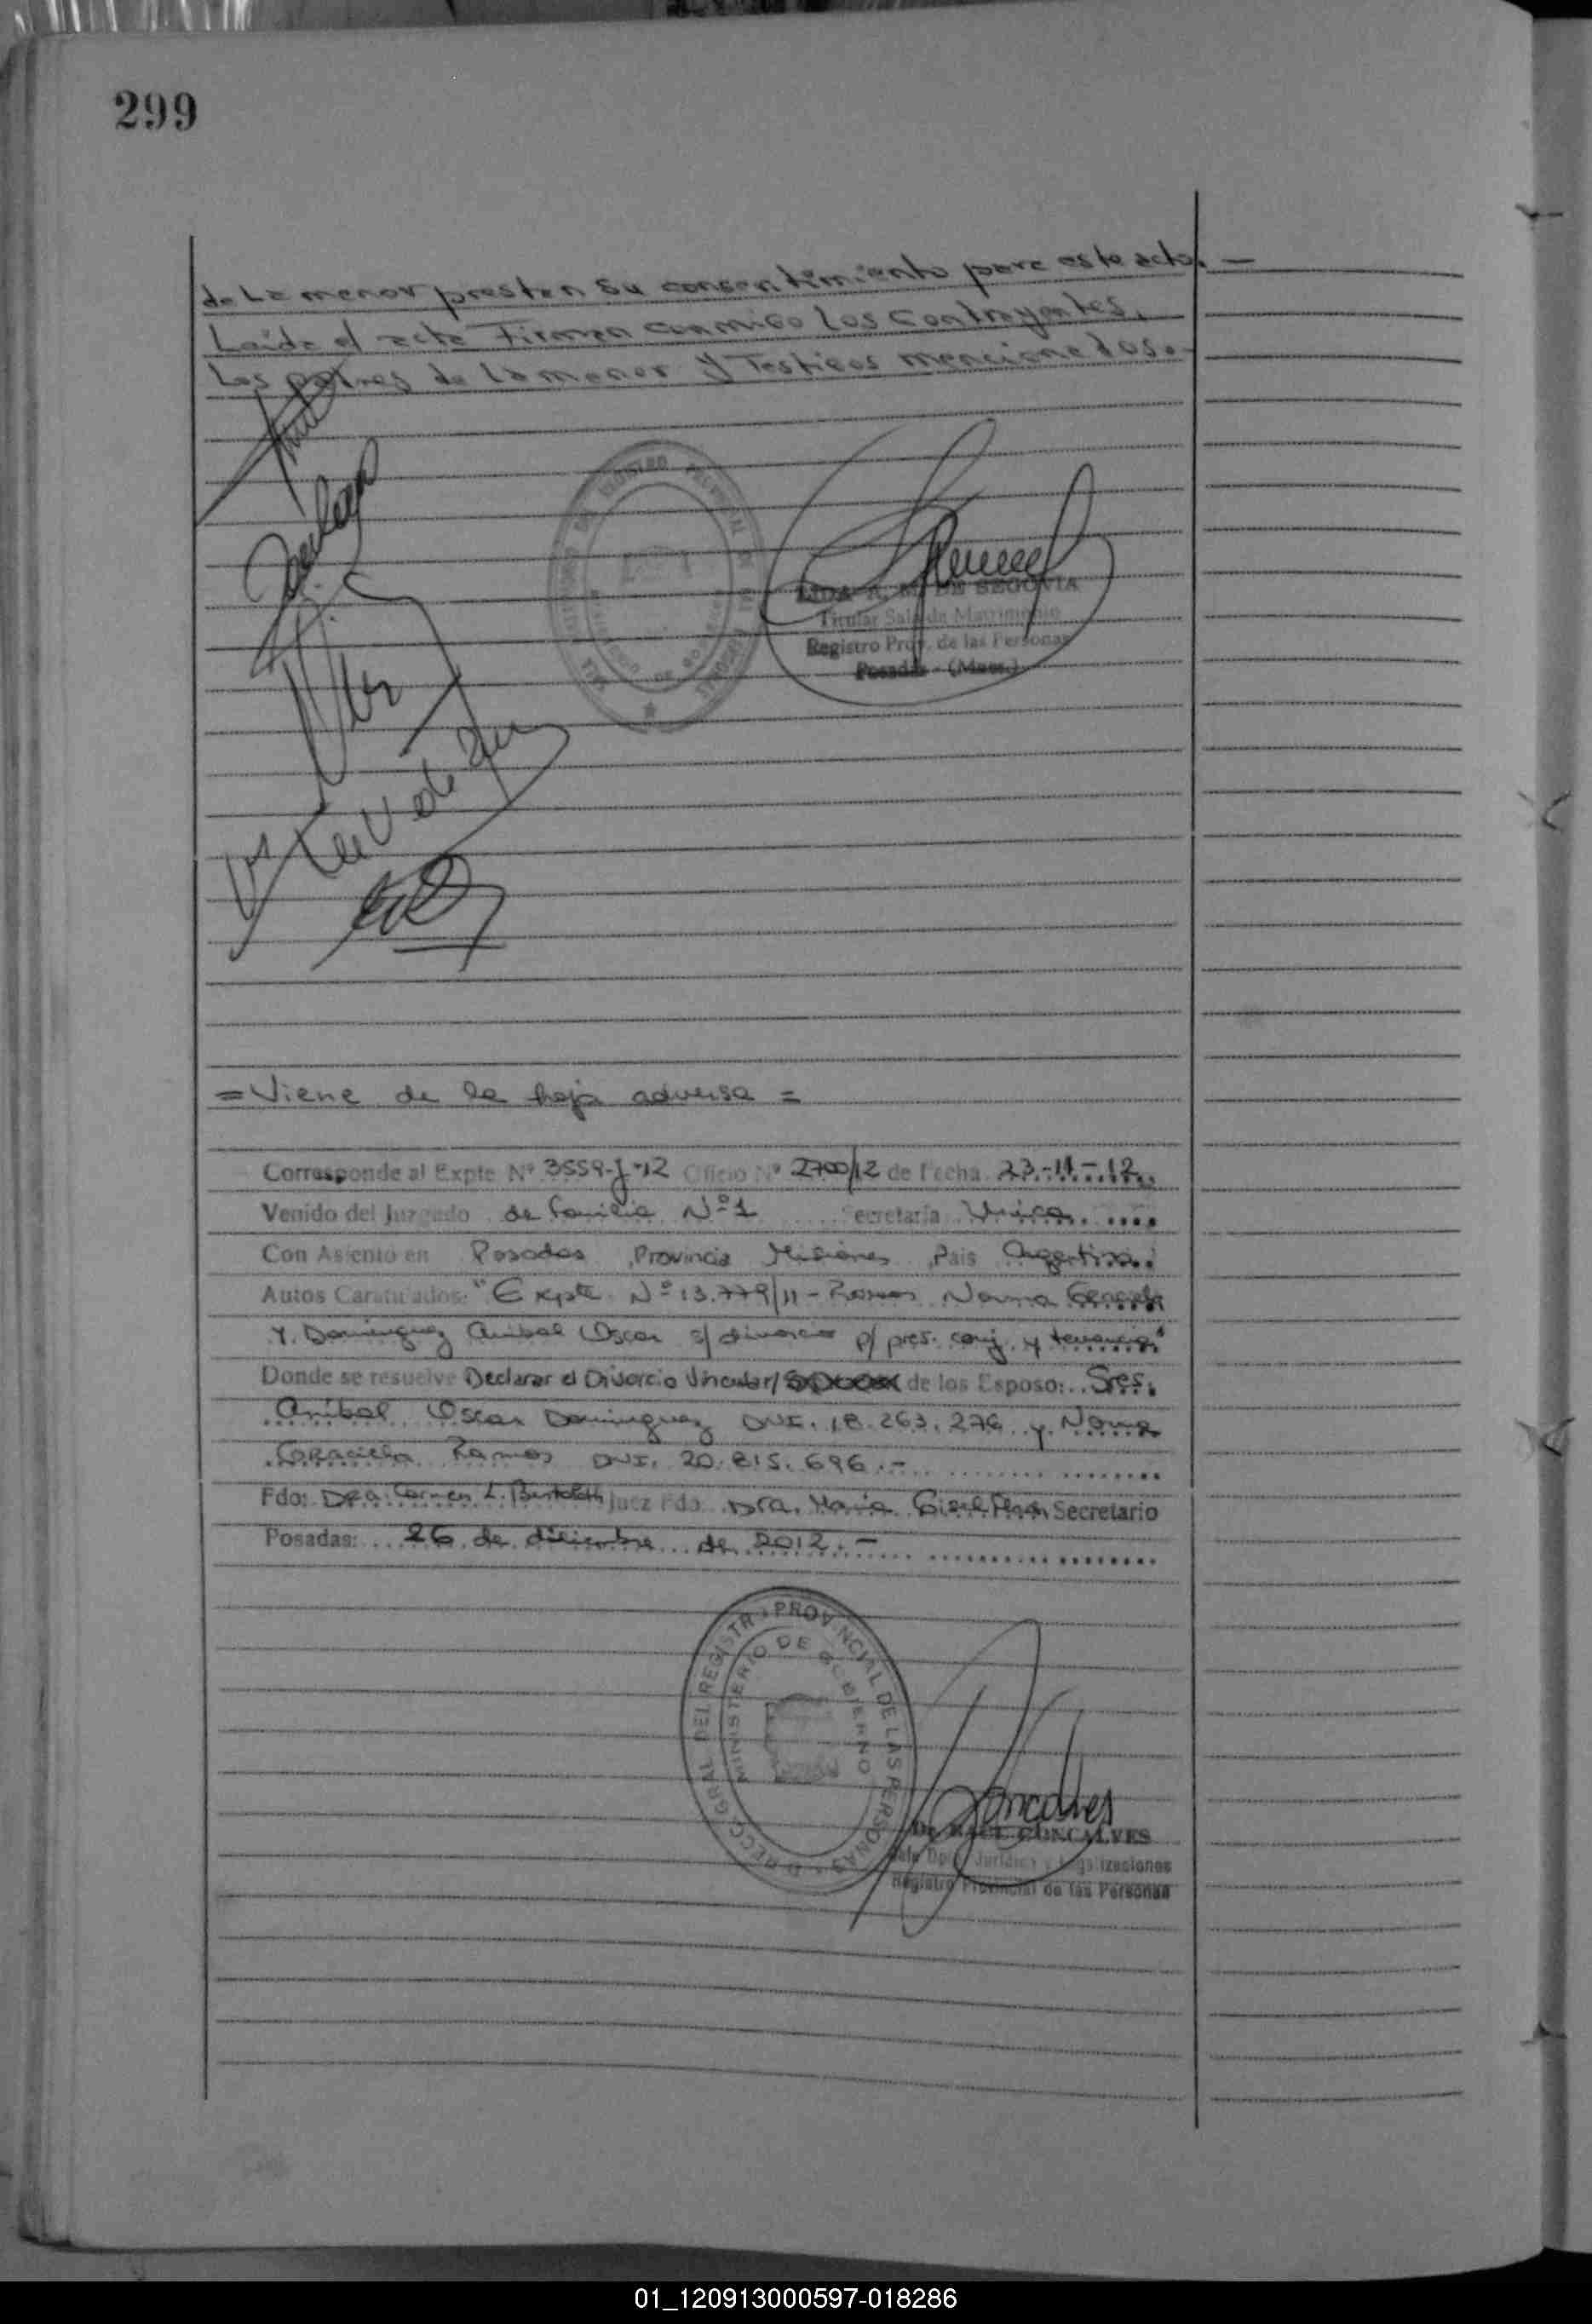 299
de La menor presten su consentimiento para este acto. —
Leida el acta Firman conmigo los Contrayentes,
Los padres de La menor y Testigos mencionados.-
LIDA A. M. DE SEGOVIA
Titular Sala de Matrimonio
Registro Prov. de las Personas
Posadas - (Mnes.)
= Viene de la hoja adversa =
Corresponde al Expte Nº 3559-J-12 Oficio Nº 2700/12 de Fecha 23-11-12.
Venido del Juzgado de Familia Nº 1 Secretaria Unica
Con Asiento en Posadas Provincia Misiones Pais Argentina
Autos Caratulados: "Expte Nº 13.779/11 - Ramos Norma Graciela
y Dominguez Anibal Oscar s/ divorcio p/ pres. conj. y tenencia"
Donde se resuelve Declarar el Divorcio Vincular/ de los Esposo: Sres.
Anibal Oscar Dominguez DNI. 18.263.276 y Norma
Graciela Ramos DNI. 20.815.696.-
Fdo: Dra. Carmen L. Juez Fdo. Dra. Maria Secretario
Posadas: 26 de diciembre de 2012.-
DIRECC. GRAL DEL REGISTRO PROVINCIAL DE LAS PERSONAS
MINISTERIO DE GOBIERNO
Goncalves
Dr. RAUL GONCALVES
Jefe Dpto. Jurídico y Legalizaciones
Registro Provincial de las Personas
01_120913000597-018286